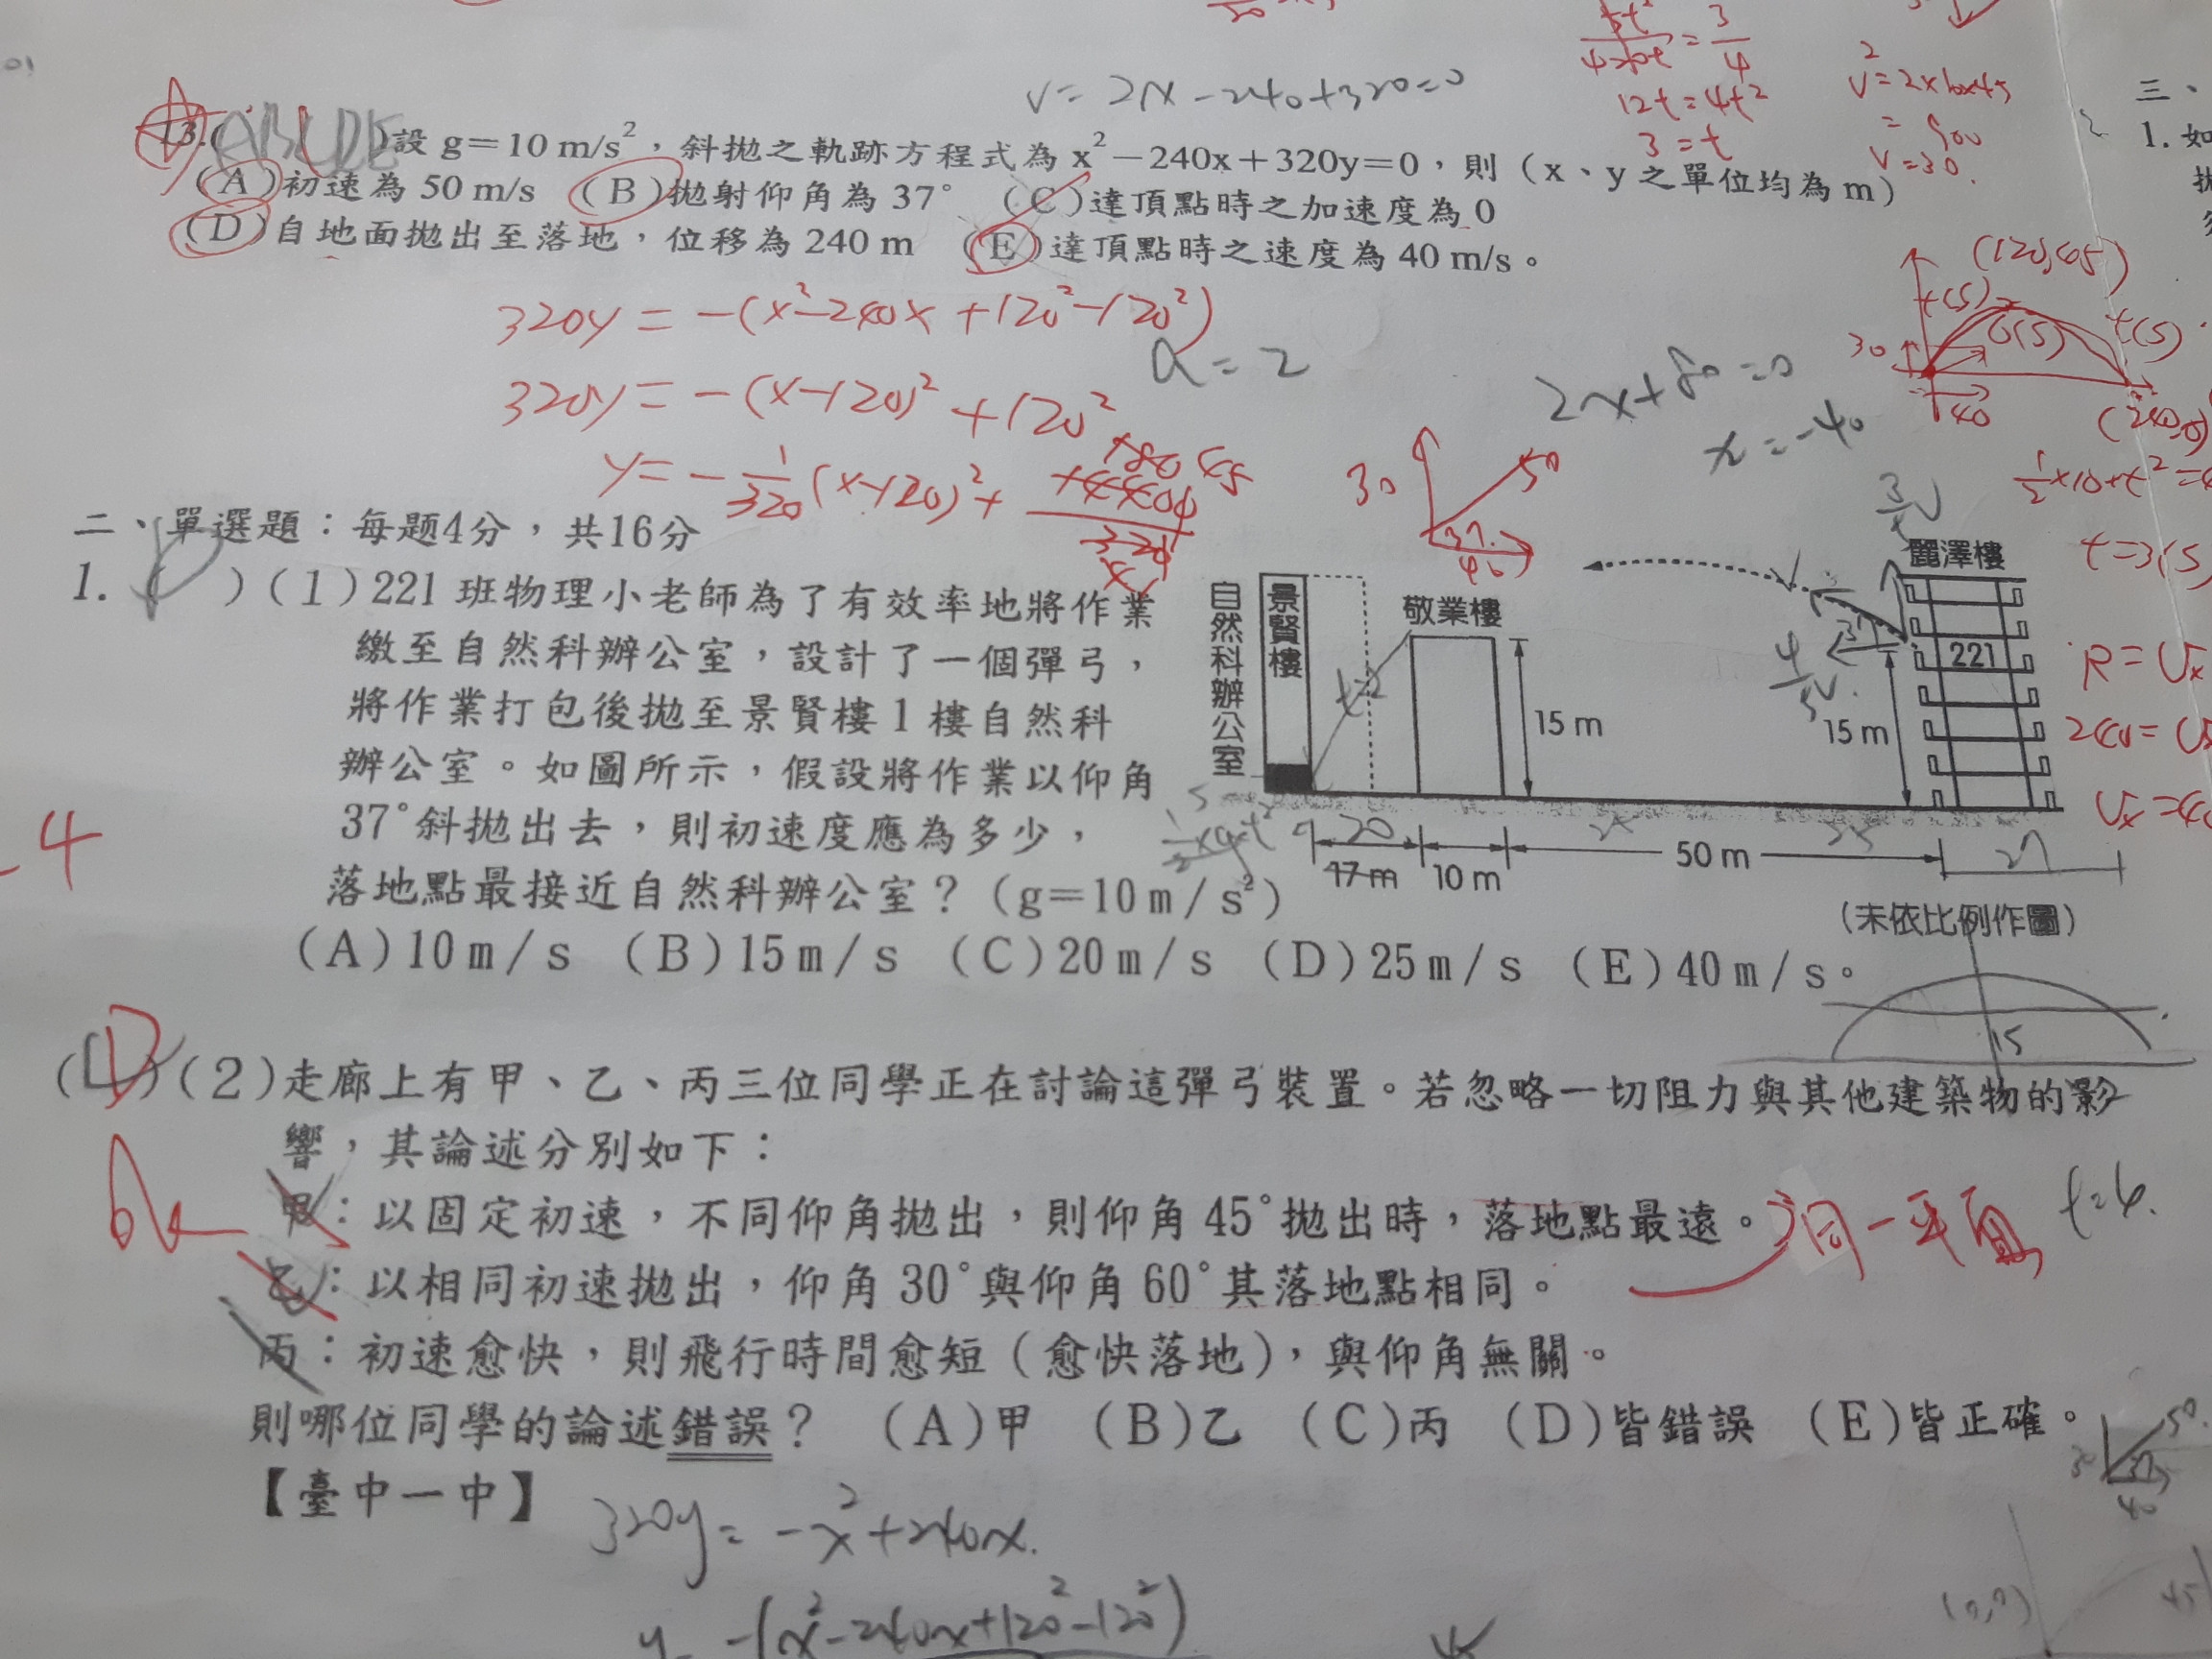 v = 2x - 240 + 320 = 0
= 3/4
12t = 4t²
3 = t
v² = 2×10×45
= 900
v = 30.
三、
1. 如
13.(ABCDE)設 g＝10 m/s²，斜拋之軌跡方程式為 x²－240x＋320y＝0，則（x、y 之單位均為 m）
(A)初速為 50 m/s　(B)拋射仰角為 37°　(C)達頂點時之加速度為 0
(D)自地面拋出至落地，位移為 240 m　(E)達頂點時之速度為 40 m/s。
320y = -(x²-240x+120²-120²)
a = 2
320y = -(x-120)²+120²
y = -1/320 (x-120)²+
45
2x+80=0
x = -40
30
50
37°
40
(120,45)
t(s)
6(s)
t(s)
30
40
(240,0)
1/2×10×t²=4
t=3(s)
R = Vx
240 = V
Vx = 40
二、單選題：每題4分，共16分
1. (D)(1) 221 班物理小老師為了有效率地將作業
繳至自然科辦公室，設計了一個彈弓，
將作業打包後拋至景賢樓 1 樓自然科
辦公室。如圖所示，假設將作業以仰角
37°斜拋出去，則初速度應為多少，
落地點最接近自然科辦公室？（g＝10 m/s²）
(A)10 m/s　(B)15 m/s　(C)20 m/s　(D)25 m/s　(E)40 m/s。
自然科辦公室
景賢樓
敬業樓
麗澤樓
221
15 m
15 m
4/5 v.
20
17 m
10 m
25
50 m
25
（未依比例作圖）
15
-4
(D)(2)走廊上有甲、乙、丙三位同學正在討論這彈弓裝置。若忽略一切阻力與其他建築物的影
響，其論述分別如下：
甲：以固定初速，不同仰角拋出，則仰角 45°拋出時，落地點最遠。
同一平面
t=6.
乙：以相同初速拋出，仰角 30°與仰角 60°其落地點相同。
丙：初速愈快，則飛行時間愈短（愈快落地），與仰角無關。
則哪位同學的論述錯誤？　(A)甲　(B)乙　(C)丙　(D)皆錯誤　(E)皆正確。
【臺中一中】
50
40
320y = -x²+240x.
-(x²-240x+120²-120²)
(0,0)
45